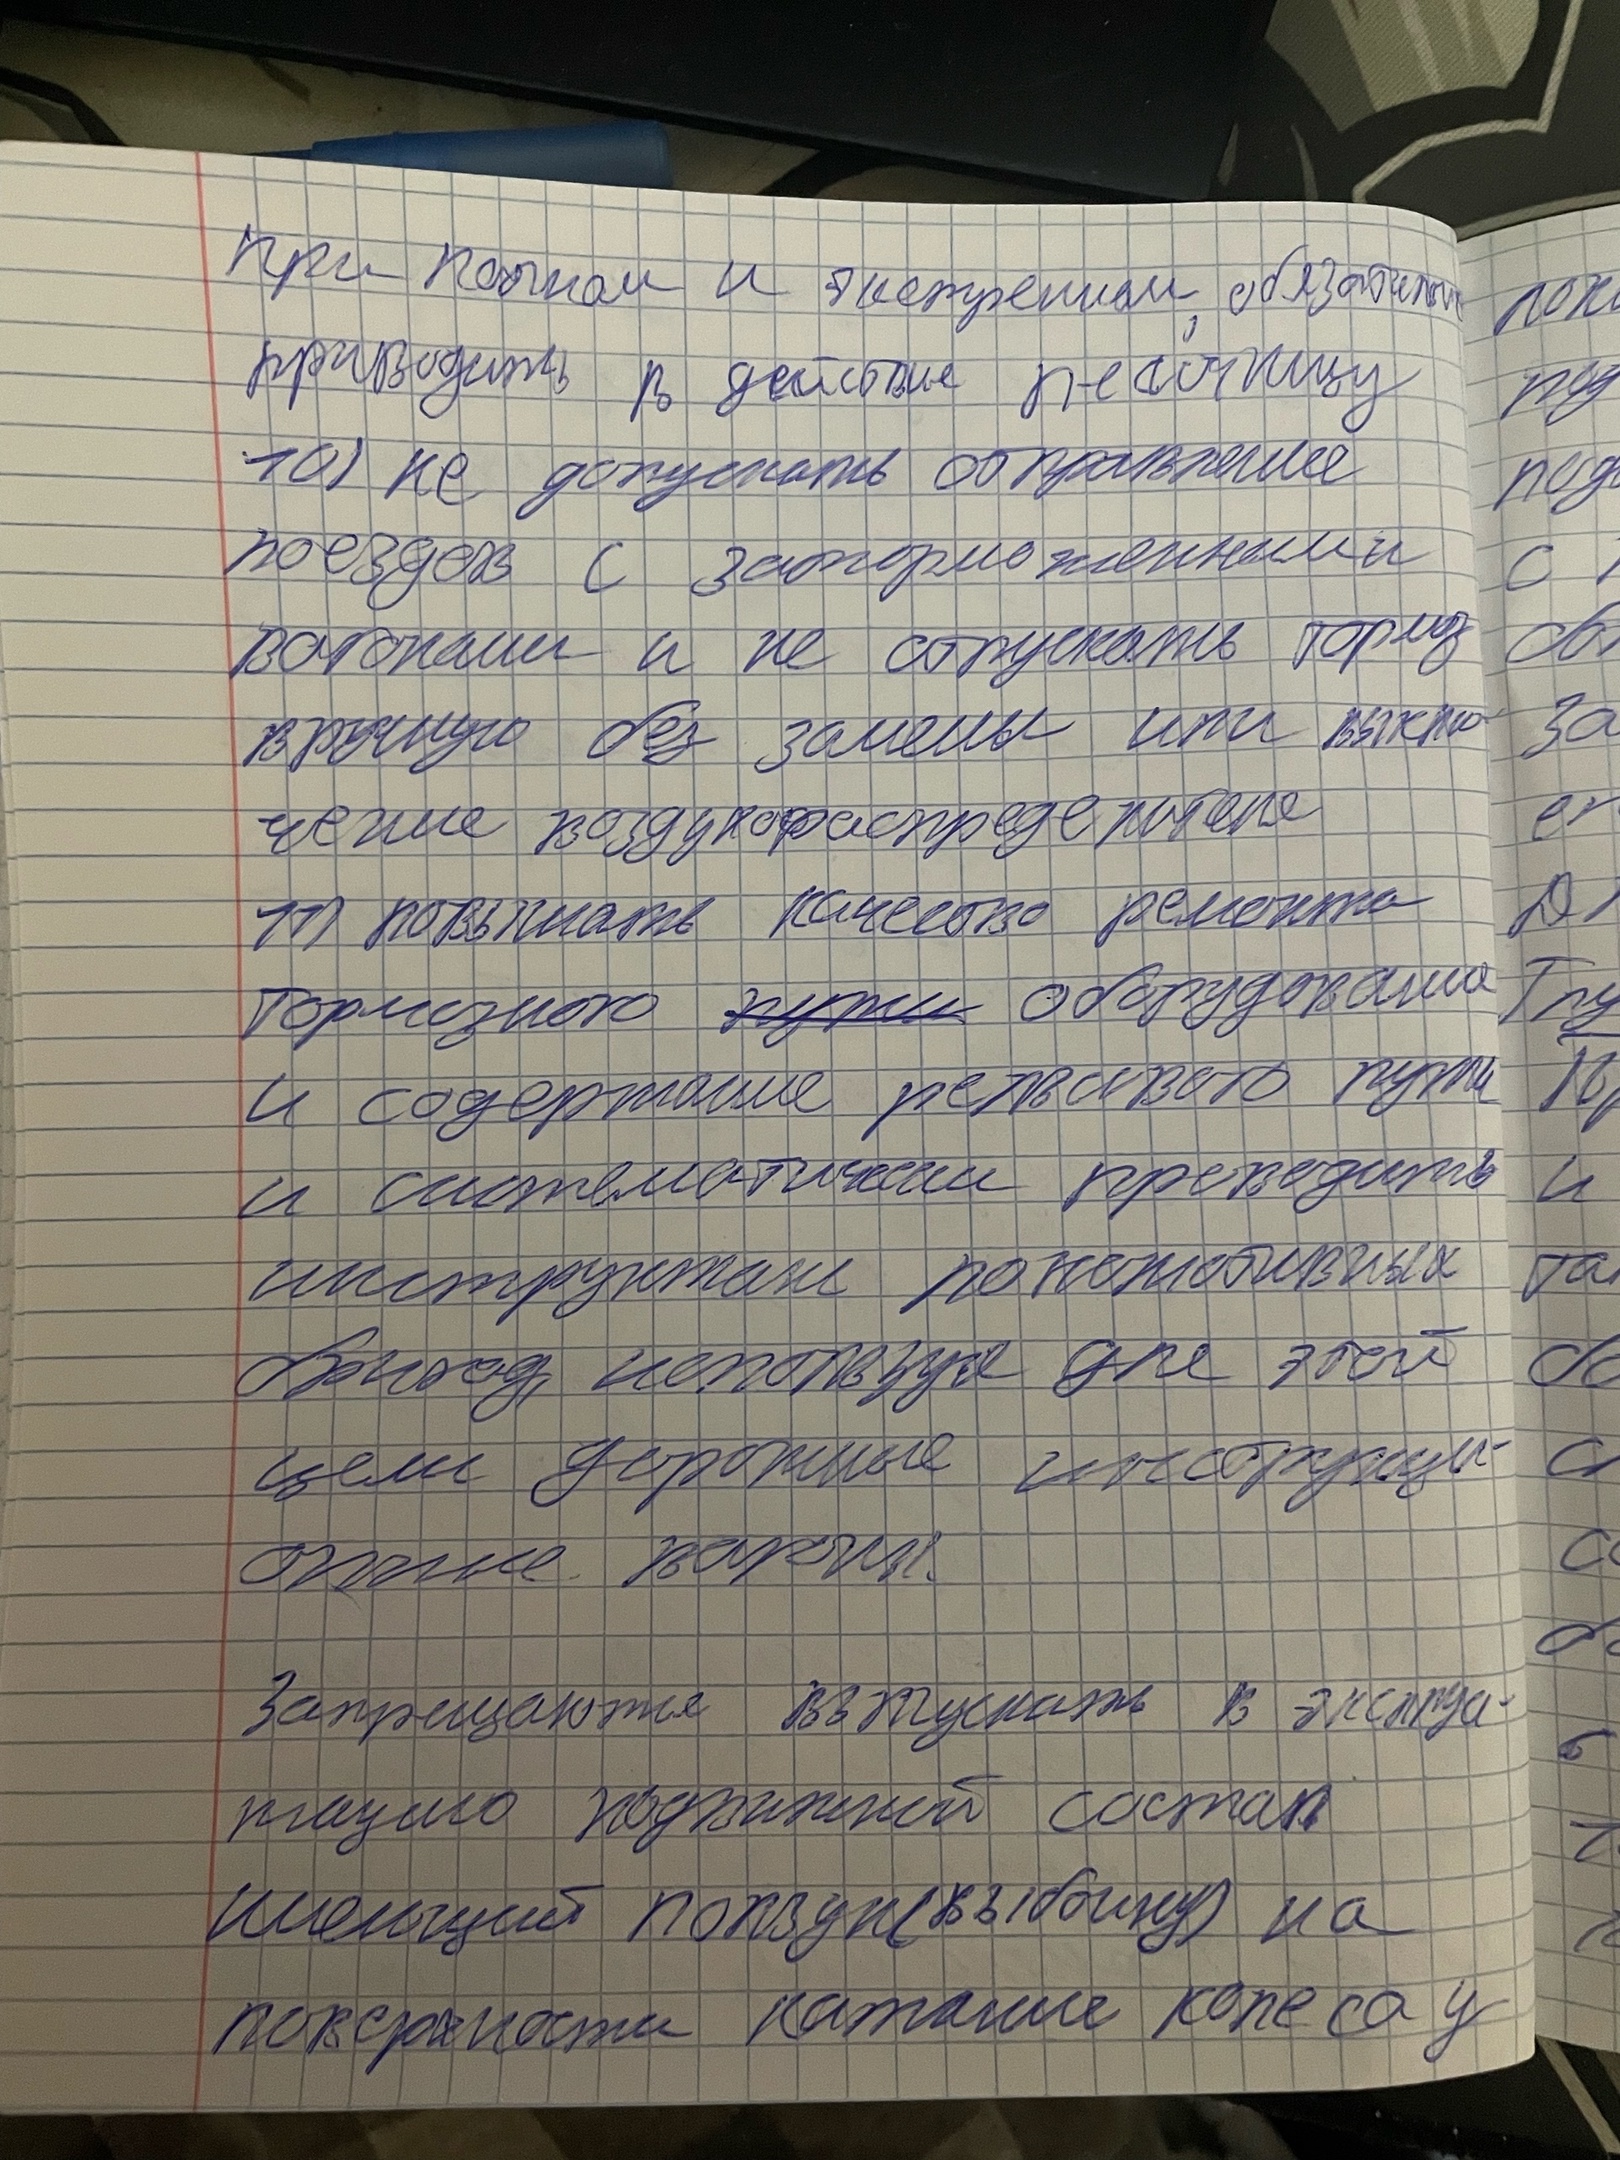 при полном и экстренном, обязательно
приводить в действие песочницу
10) не допускать отправление
поездов с заторможенными
вагонами и не отпускать тормоз
вручную без замены или выклю-
чение воздухораспределителя
11) повышать качество ремонта
тормозного пути оборудования
и содержание рельсового пути
и систематически проводить
инструктаж локомотивных
бригад, используя для этой
цели дорожные инструкци-
онные вагоны.
Запрещаются выпускать в эксплуа-
тацию подвижной состав
имеющий ползун (выбоину) на
поверхности катание колеса у
локо
под
с
За
ег
Тлу
и
с